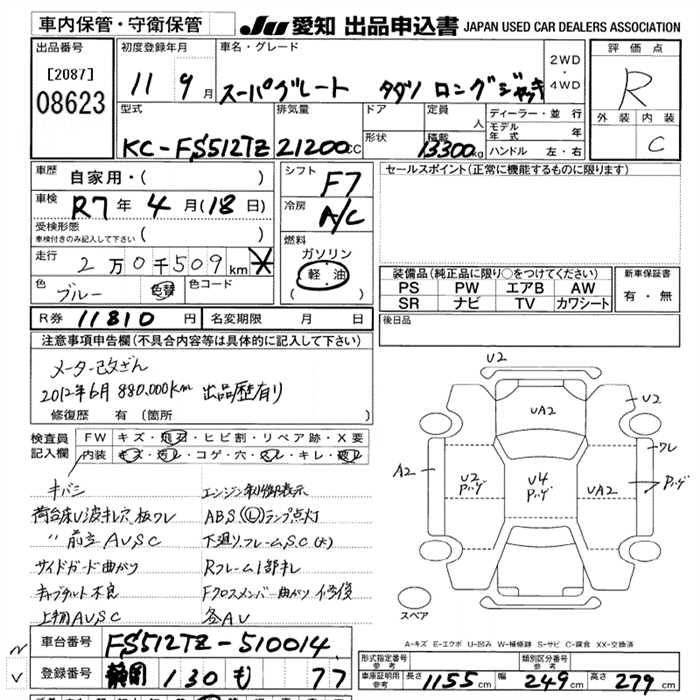 車内保管・守衛保管
JU 愛知 出品申込書 JAPAN USED CAR DEALERS ASSOCIATION
出品番号
[2087]
08623
初度登録年月
11 9月
車名・グレード
スーパグレート タダノ ロングジャッキ
2WD
・
4WD
型式
KC-FS512TZ
排気量
21200cc
ドア
形状
定員
人
積載
13300kg
ディーラー・並行
モデル年式 年
ハンドル 左・右
評価点
R
外装 内装
C
車歴
自家用・( )
車検
R7年 4月(18日)
受検形態
車検付きのみ記入して下さい ( )
走行
2万0千509km
色
ブルー 色替
色コード
シフト
F7
冷房
A/C
燃料
ガソリン
軽油
( )
セールスポイント(正常に機能するものに限ります)
装備品(純正品に限り○をつけてください)
PS PW エアB AW
SR ナビ TV カワシート
新車保証書
有・無
R券 11810円
名変期限 月 日
後日品
注意事項申告欄(不具合内容等は具体的に記入して下さい)
メーター改ざん
2012年6月 880,000km 出品歴有り
修復歴 有 (箇所
検査員
記入欄
FW キズ・飛石・ヒビ割・リペア跡・X要
内装 キズ・汚レ・コゲ・穴・スレ・キレ・破レ
キバミ
荷台床U波キレ穴、板ワレ
〃 前立AUSC
サイドガード曲がり
キャブチルト不良
上物AUSC
エンジン制御表示
ABS Ⓛランプ点灯
下廻りフレームS.C(大)
Rフレーム1部キレ
Fクロスメンバー曲がり修復
各AU
U2
UA2
U2
ワレ
A2
U2
Pハゲ
U4
Pハゲ
UA2
Pハゲ
スペア
A-キズ E-エクボ U-凹み W-補修跡 S-サビ C-腐食 XX-交換済
車台番号 FS512TZ-510014
登録番号 静岡 130 も 77
形式指定番号
参考
類別区分番号
参考
車庫証明用
参考
長さ 1155cm 幅 249cm 高さ 279cm